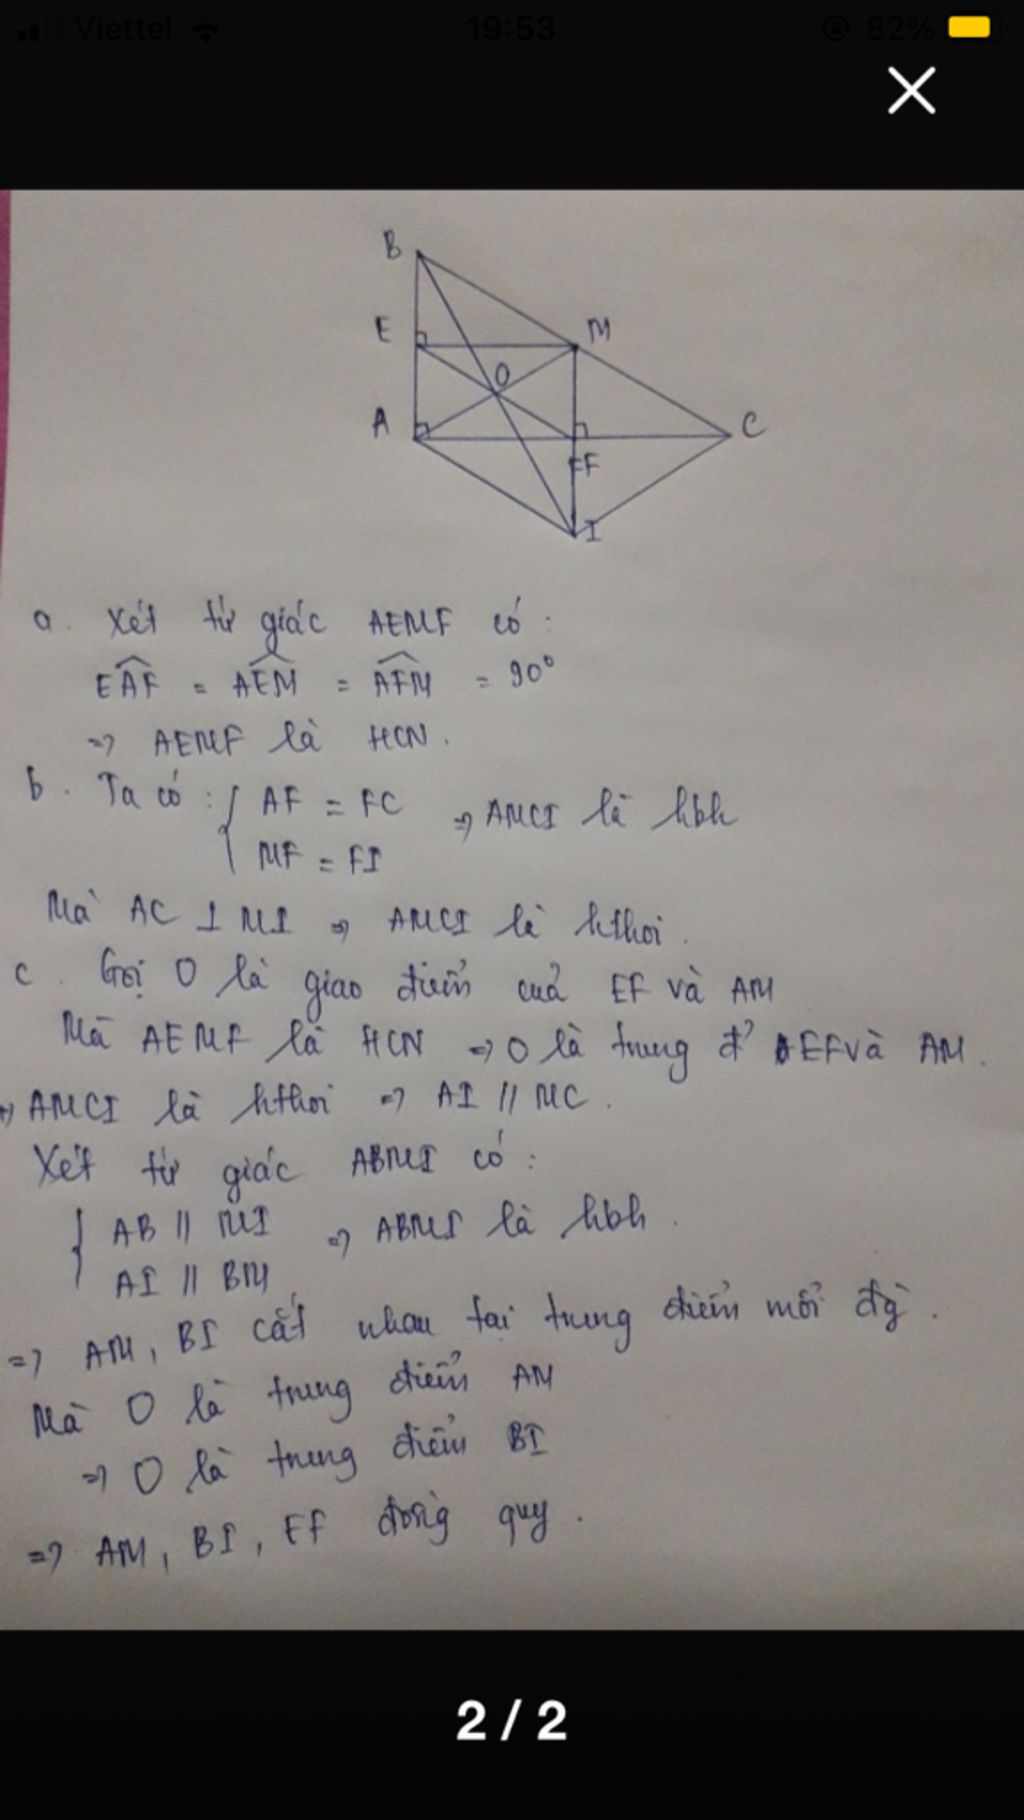 Viettel 19:53 82%
B
E M
O
A C
FF
I
a. Xét tứ giác AEMF có:
EAF = AEM = AFM = 90°
=> AEMF là HCN.
b. Ta có: { AF = FC => AMCI là hbh
MF = FI
Mà AC ⊥ MI => AMCI là hthoi.
c. Gọi O là giao điểm của EF và AM
Mà AEMF là HCN => O là trung đ' EF và AM.
+, AMCI là hthoi => AI // MC.
Xét tứ giác ABMI có:
{ AB // MI => ABMI là hbh.
AI // BM
=> AM, BI cắt nhau tại trung điểm mỗi đg.
Mà O là trung điểm AM
=> O là trung điểm BI
=> AM, BI, EF đồng quy.
2 / 2